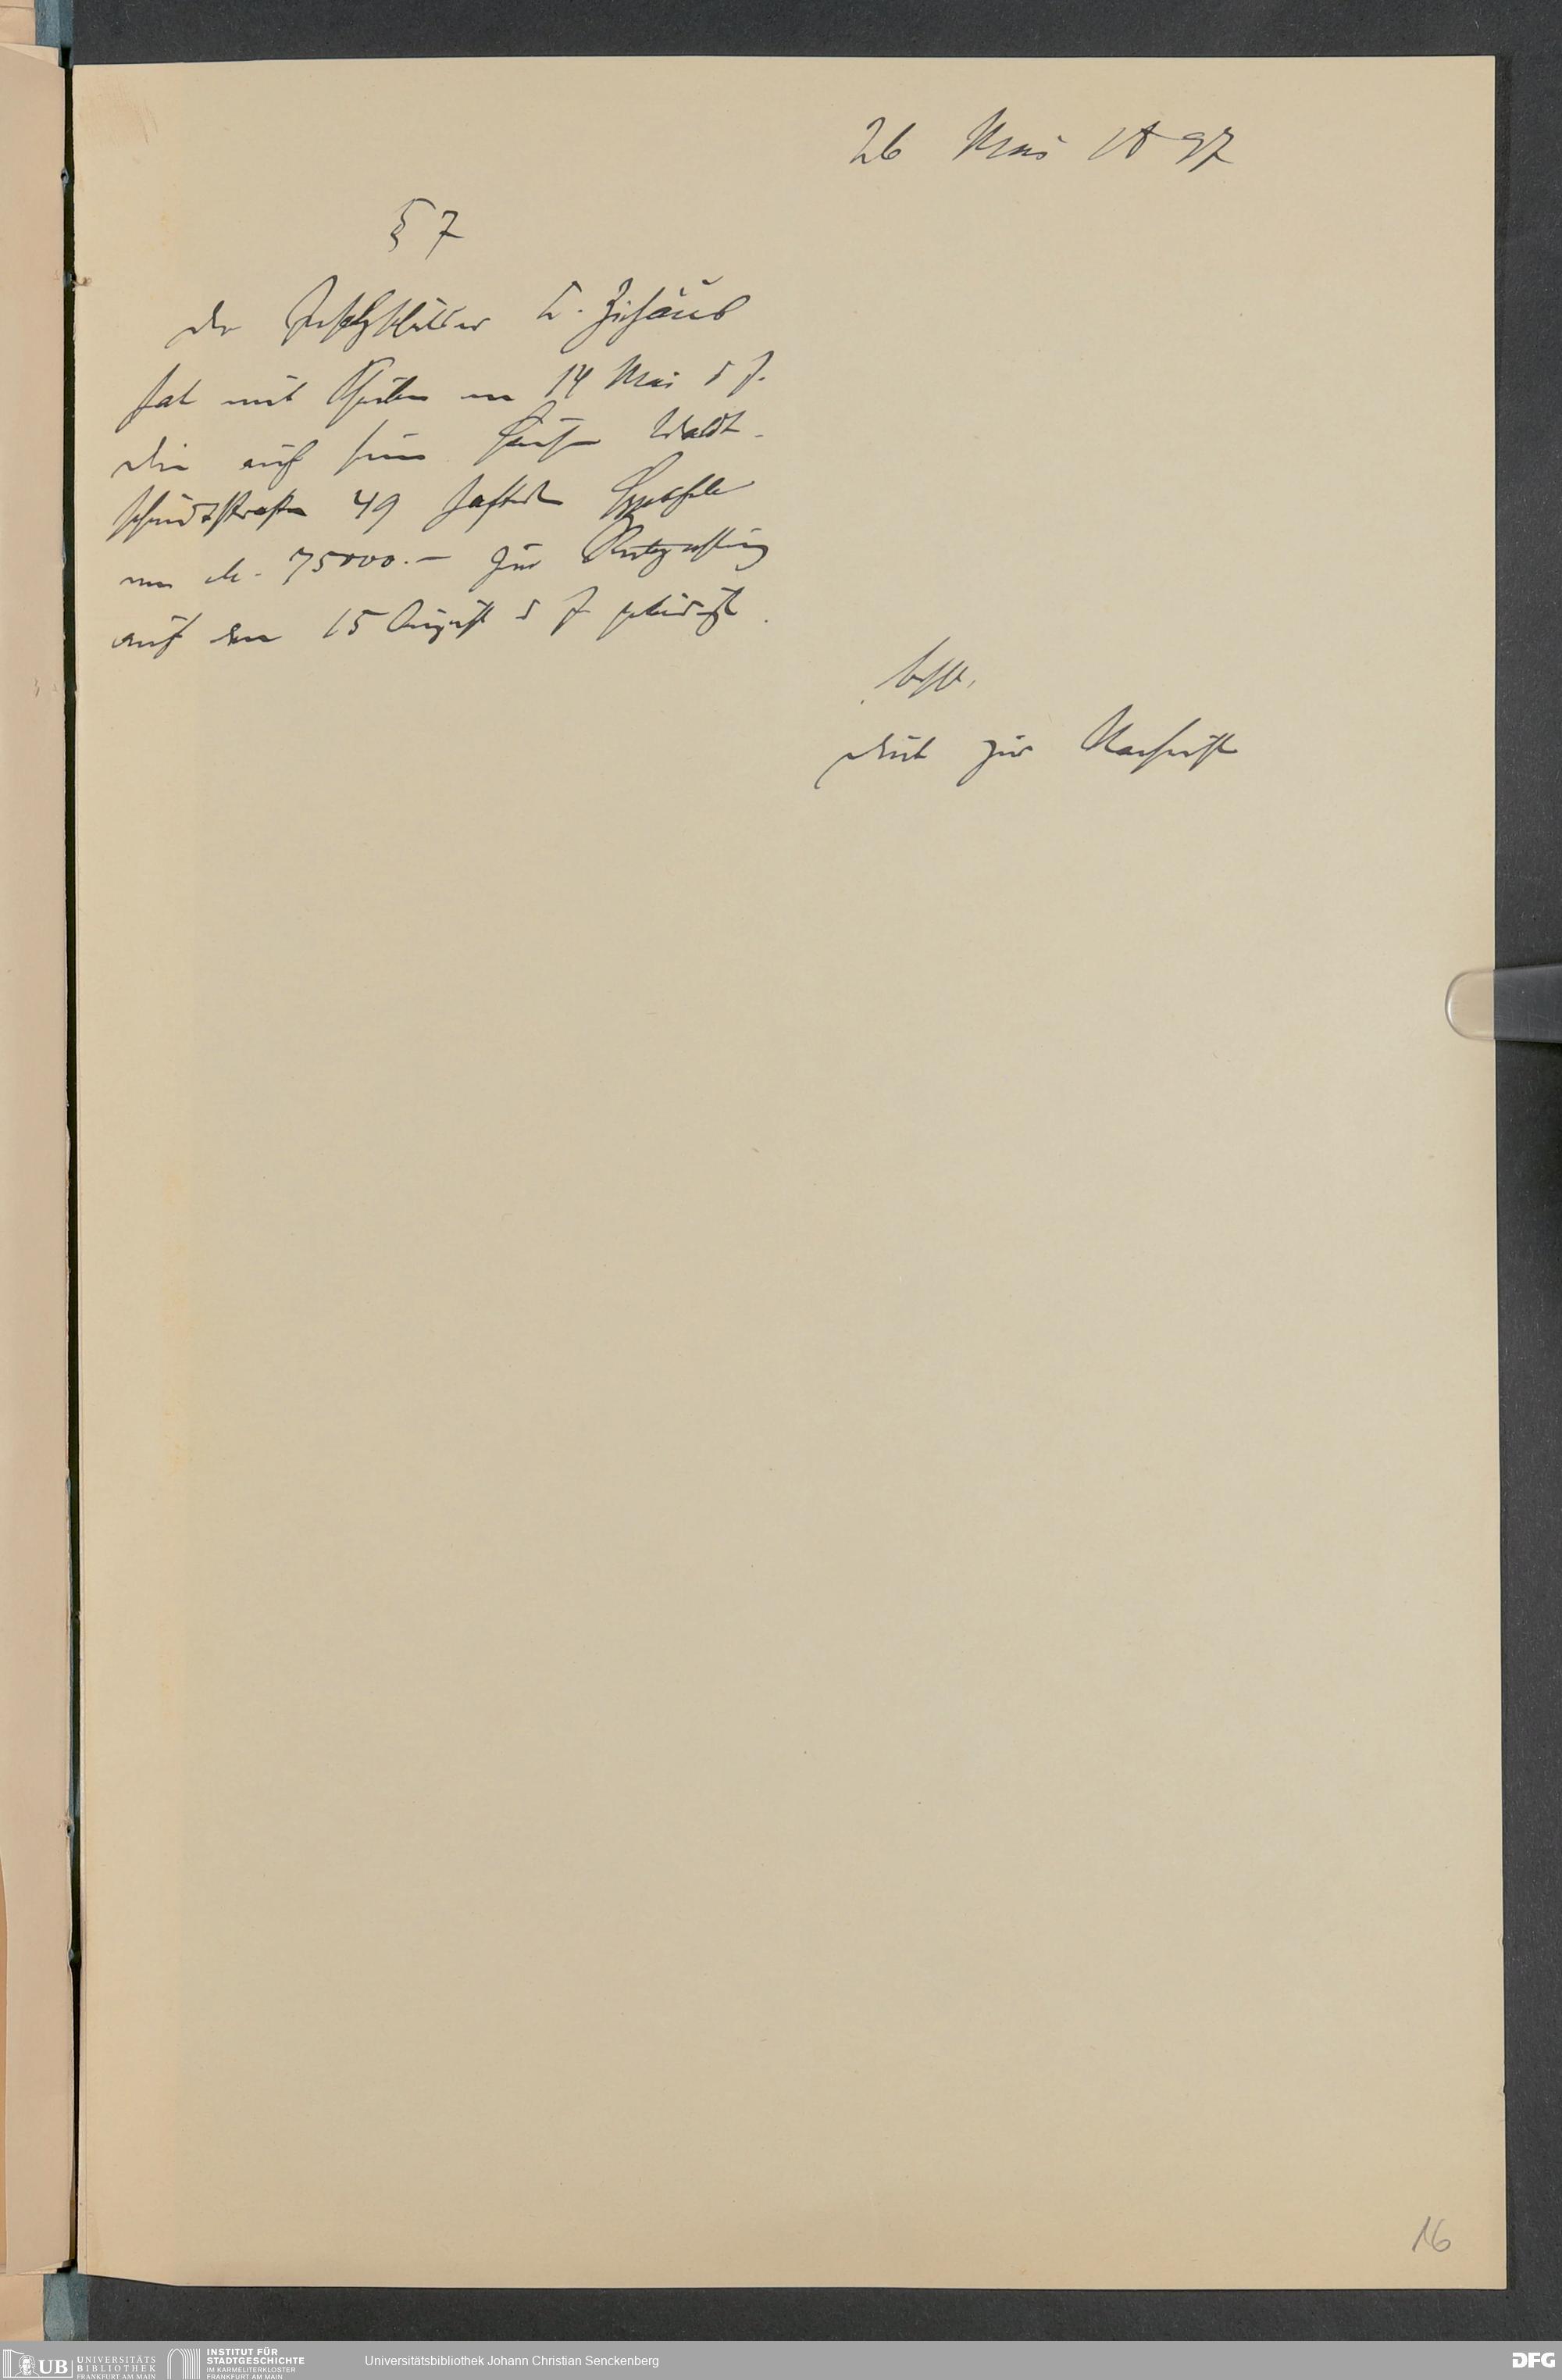 26 Mai 1897
§ 7
der
hat mit Schreiben vom 14 Mai d J.
die auf seinem Hause Wald-
schmidtstrasse 49 haftende Hypothek
von M. 75000.– zur Rückzahlung
auf den 15 August d J gekündigt.
beschl.
dient zur Nachricht
16
UB UNIVERSITÄTS BIBLIOTHEK FRANKFURT AM MAIN
INSTITUT FÜR STADTGESCHICHTE IM KARMELITERKLOSTER FRANKFURT AM MAIN
Universitätsbibliothek Johann Christian Senckenberg
DFG